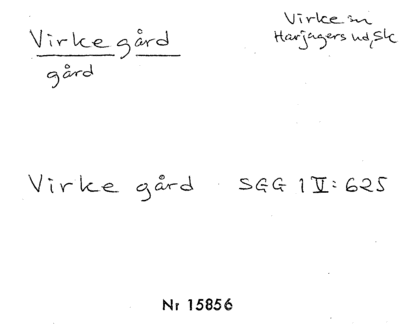 Virke gård
gård
Virke sn
Harjagers hd, Sk
Virke gård SGG 1 V: 625
Nr 15856